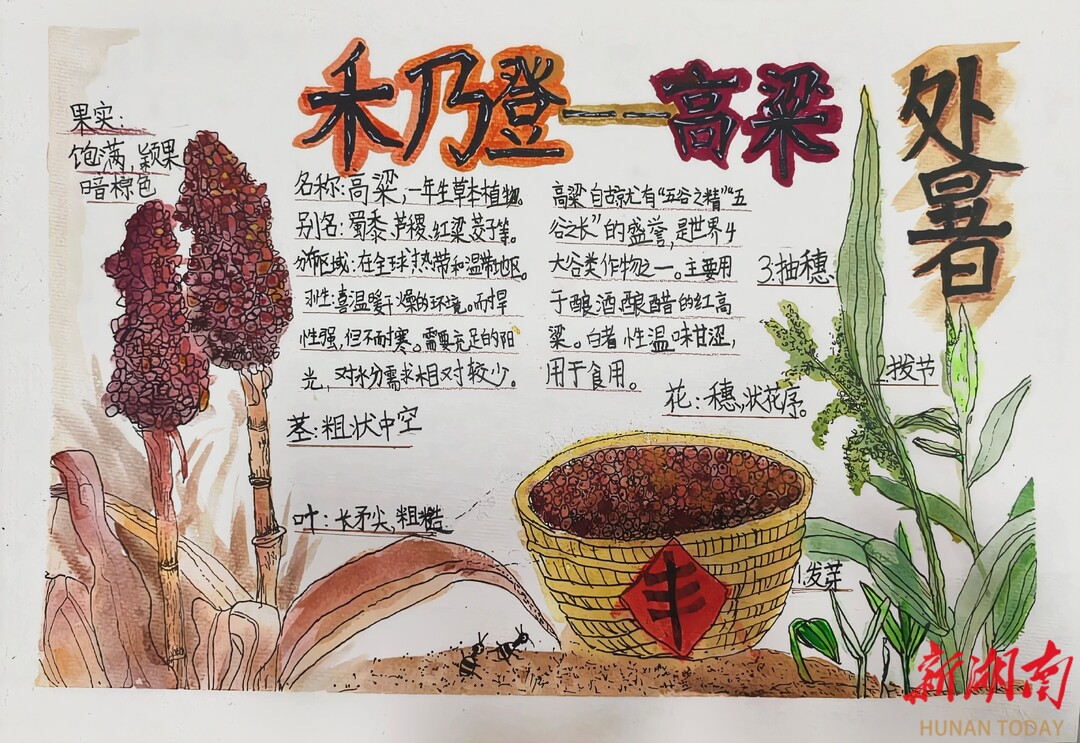 禾乃登——高粱
处暑
果实:
饱满,颖果
暗棕色
名称:高粱,一年生草本植物。
别名:蜀黍,芦稷,红粱,茭子等。
分布区域:在全球热带和温带地区。
习性:喜温暖干燥的环境。而耐旱
性强,但不耐寒。需要充足的阳
光,对水分需求相对较少。
高粱自古就有“五谷之精”“五
谷之长”的盛誉,是世界4
大谷类作物之一。主要用
于酿酒酿醋的红高
粱。白者性温味甘涩,
用于食用。
花:穗状花序。
茎:粗状中空
叶:长矛尖,粗糙
3.抽穗
2.拨节
1.发芽
丰
新湖南
HUNAN TODAY